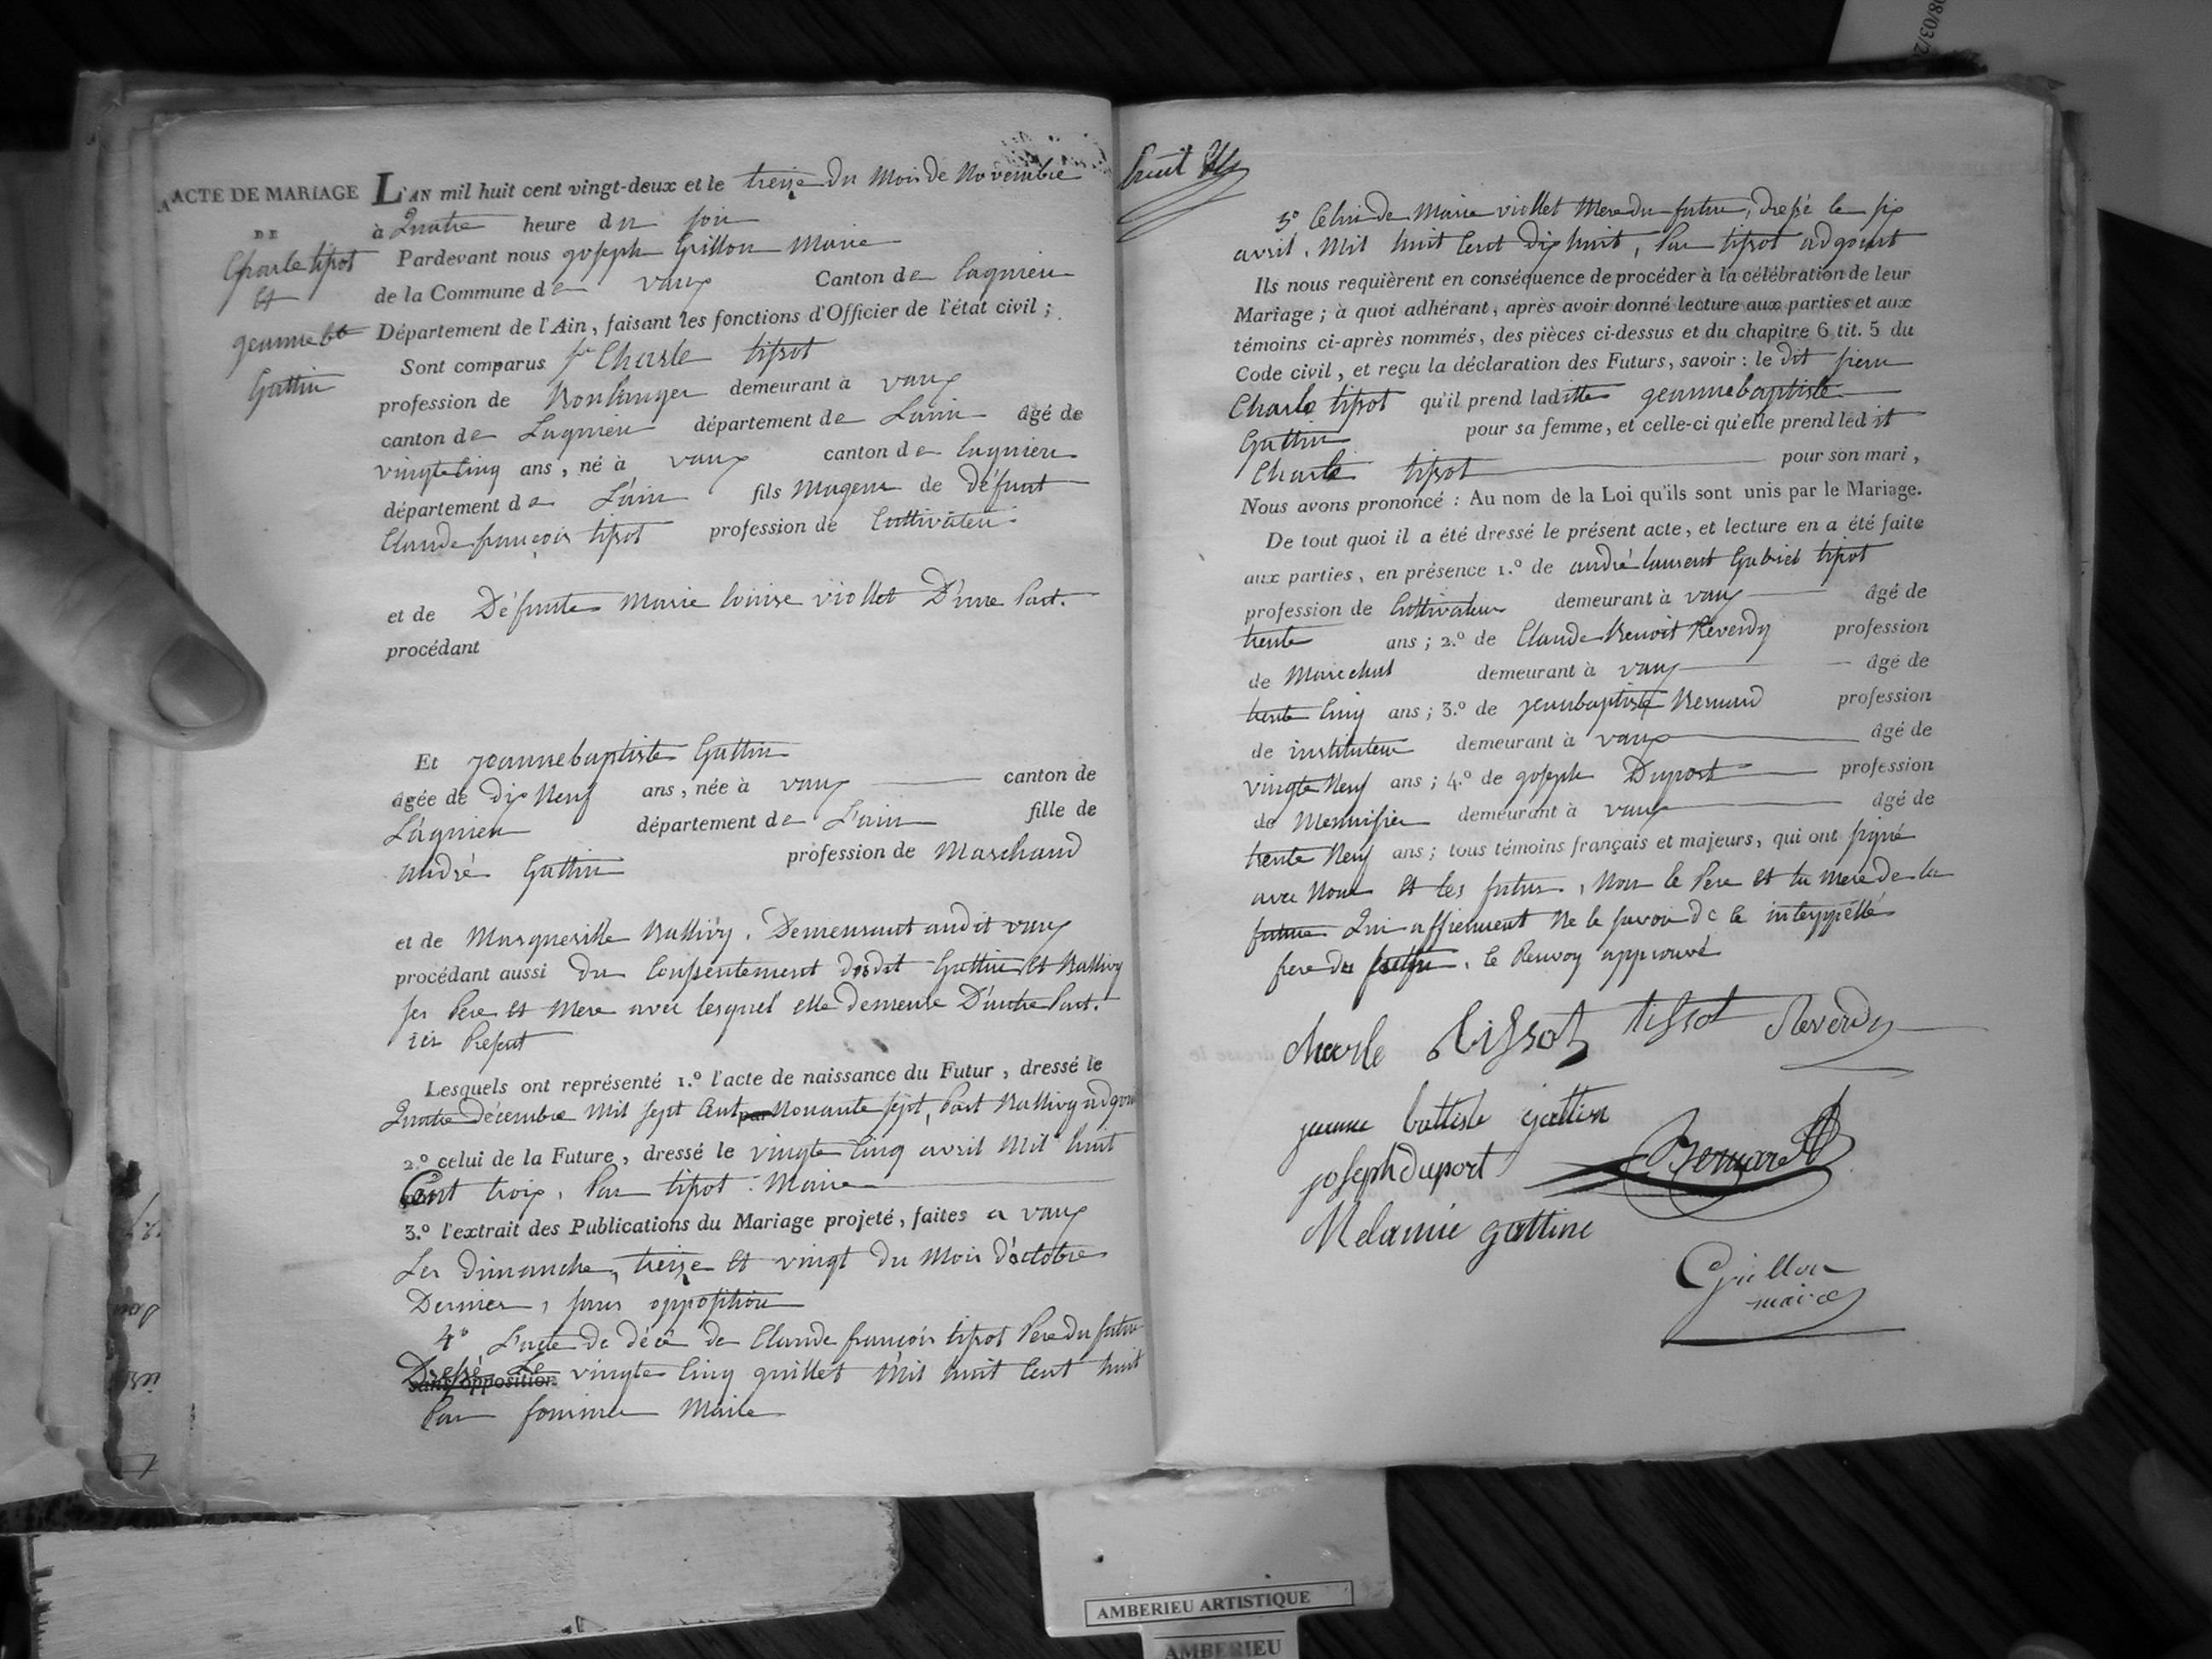 ACTE DE MARIAGE
DE
Charle tissot
et
jeanne bte
Guttin
L'AN mil huit cent vingt-deux et le treize du Mois de Novembre
à Quatre heure du soir
Pardevant nous joseph Grillon Maire
de la Commune de vaux Canton de lagnieu
Département de l'Ain, faisant les fonctions d'Officier de l'état civil ;
Sont comparus sr Charle tissot
profession de Boulanger demeurant à vaux
canton de Lagnieu département de L'ain âgé de
vingt cinq ans, né à vaux canton de lagnieu
département de L'ain fils Mageur de défunt
Claude françois tissot profession de Cultivateur
et de Défunte Marie louise viollet D'une Part.
procédant
Et jeannebaptiste Guttin
âgée de dix Neuf ans, née à vaux canton de
Lagnieu département de L'ain fille de
andré Guttin profession de Marchand
et de Margueritte Ballivy. Demeurant audit vaux
procédant aussi du Consentement dudit Guttin et Ballivy
ses Pere et Mere avec lesquel elle demeure D'autre Part.
ici Present
Lesquels ont représenté 1.º l'acte de naissance du Futur, dressé le
Quatre décembre Mil sept Cent par Nonante sept, Part Ballivy adgoin
2.º celui de la Future, dressé le vingte Cinq avril Mil huit
Cent trois, Par tissot Maire
3.º l'extrait des Publications du Mariage projeté, faites a vaux
Les dimanche, treize et vingt du Mois d'octobre
Dernier, sans opposition
4º L'acte de décè de Claude françois tissot Pere du futur
Dressé Le sans opposition vingte Cinq juillet Mil huit Cent huit
Par Maire
huit
5º Celui de Marie viollet Mere du futur, dressé le six
avril. Mil huit Cent dix huit, Par tissot adgoint
Ils nous requièrent en conséquence de procéder à la célébration de leur
Mariage ; à quoi adhérant, après avoir donné lecture aux parties et aux
témoins ci-après nommés, des pièces ci-dessus et du chapitre 6 tit. 5 du
Code civil, et reçu la déclaration des Futurs, savoir : le dit sieur
Charle tissot qu'il prend laditte jeannebaptiste
Guttin pour sa femme, et celle-ci qu'elle prend ledit
Charle tissot pour son mari,
Nous avons prononcé : Au nom de la Loi qu'ils sont unis par le Mariage.
De tout quoi il a été dressé le présent acte, et lecture en a été faite
aux parties, en présence 1.º de andré laurent Gabriel tissot
profession de Cultivateur demeurant à vaux âgé de
trente ans ; 2.º de Claude Benoit Reverdy profession
de Marechal demeurant à vaux âgé de
trente Cinq ans ; 3.º de jeanbaptiste Bernard profession
de instituteur demeurant à vaux âgé de
vingte Neuf ans ; 4.º de joseph Duport profession
de Mennisier demeurant à vaux âgé de
trente Neuf ans ; tous témoins français et majeurs, qui ont signé
avec Nous et les futur, Non le Pere et la mere de la
future Qui affirment Ne le savoir de ce interppéllé
frere du futur. le Renvoy approuvé
charle tissot tissot Reverdy
jeanne battiste gattin
joseph duport Bernard
Melanie gattine
Grillon
maire
AMBERIEU ARTISTIQUE
AMBERIEU